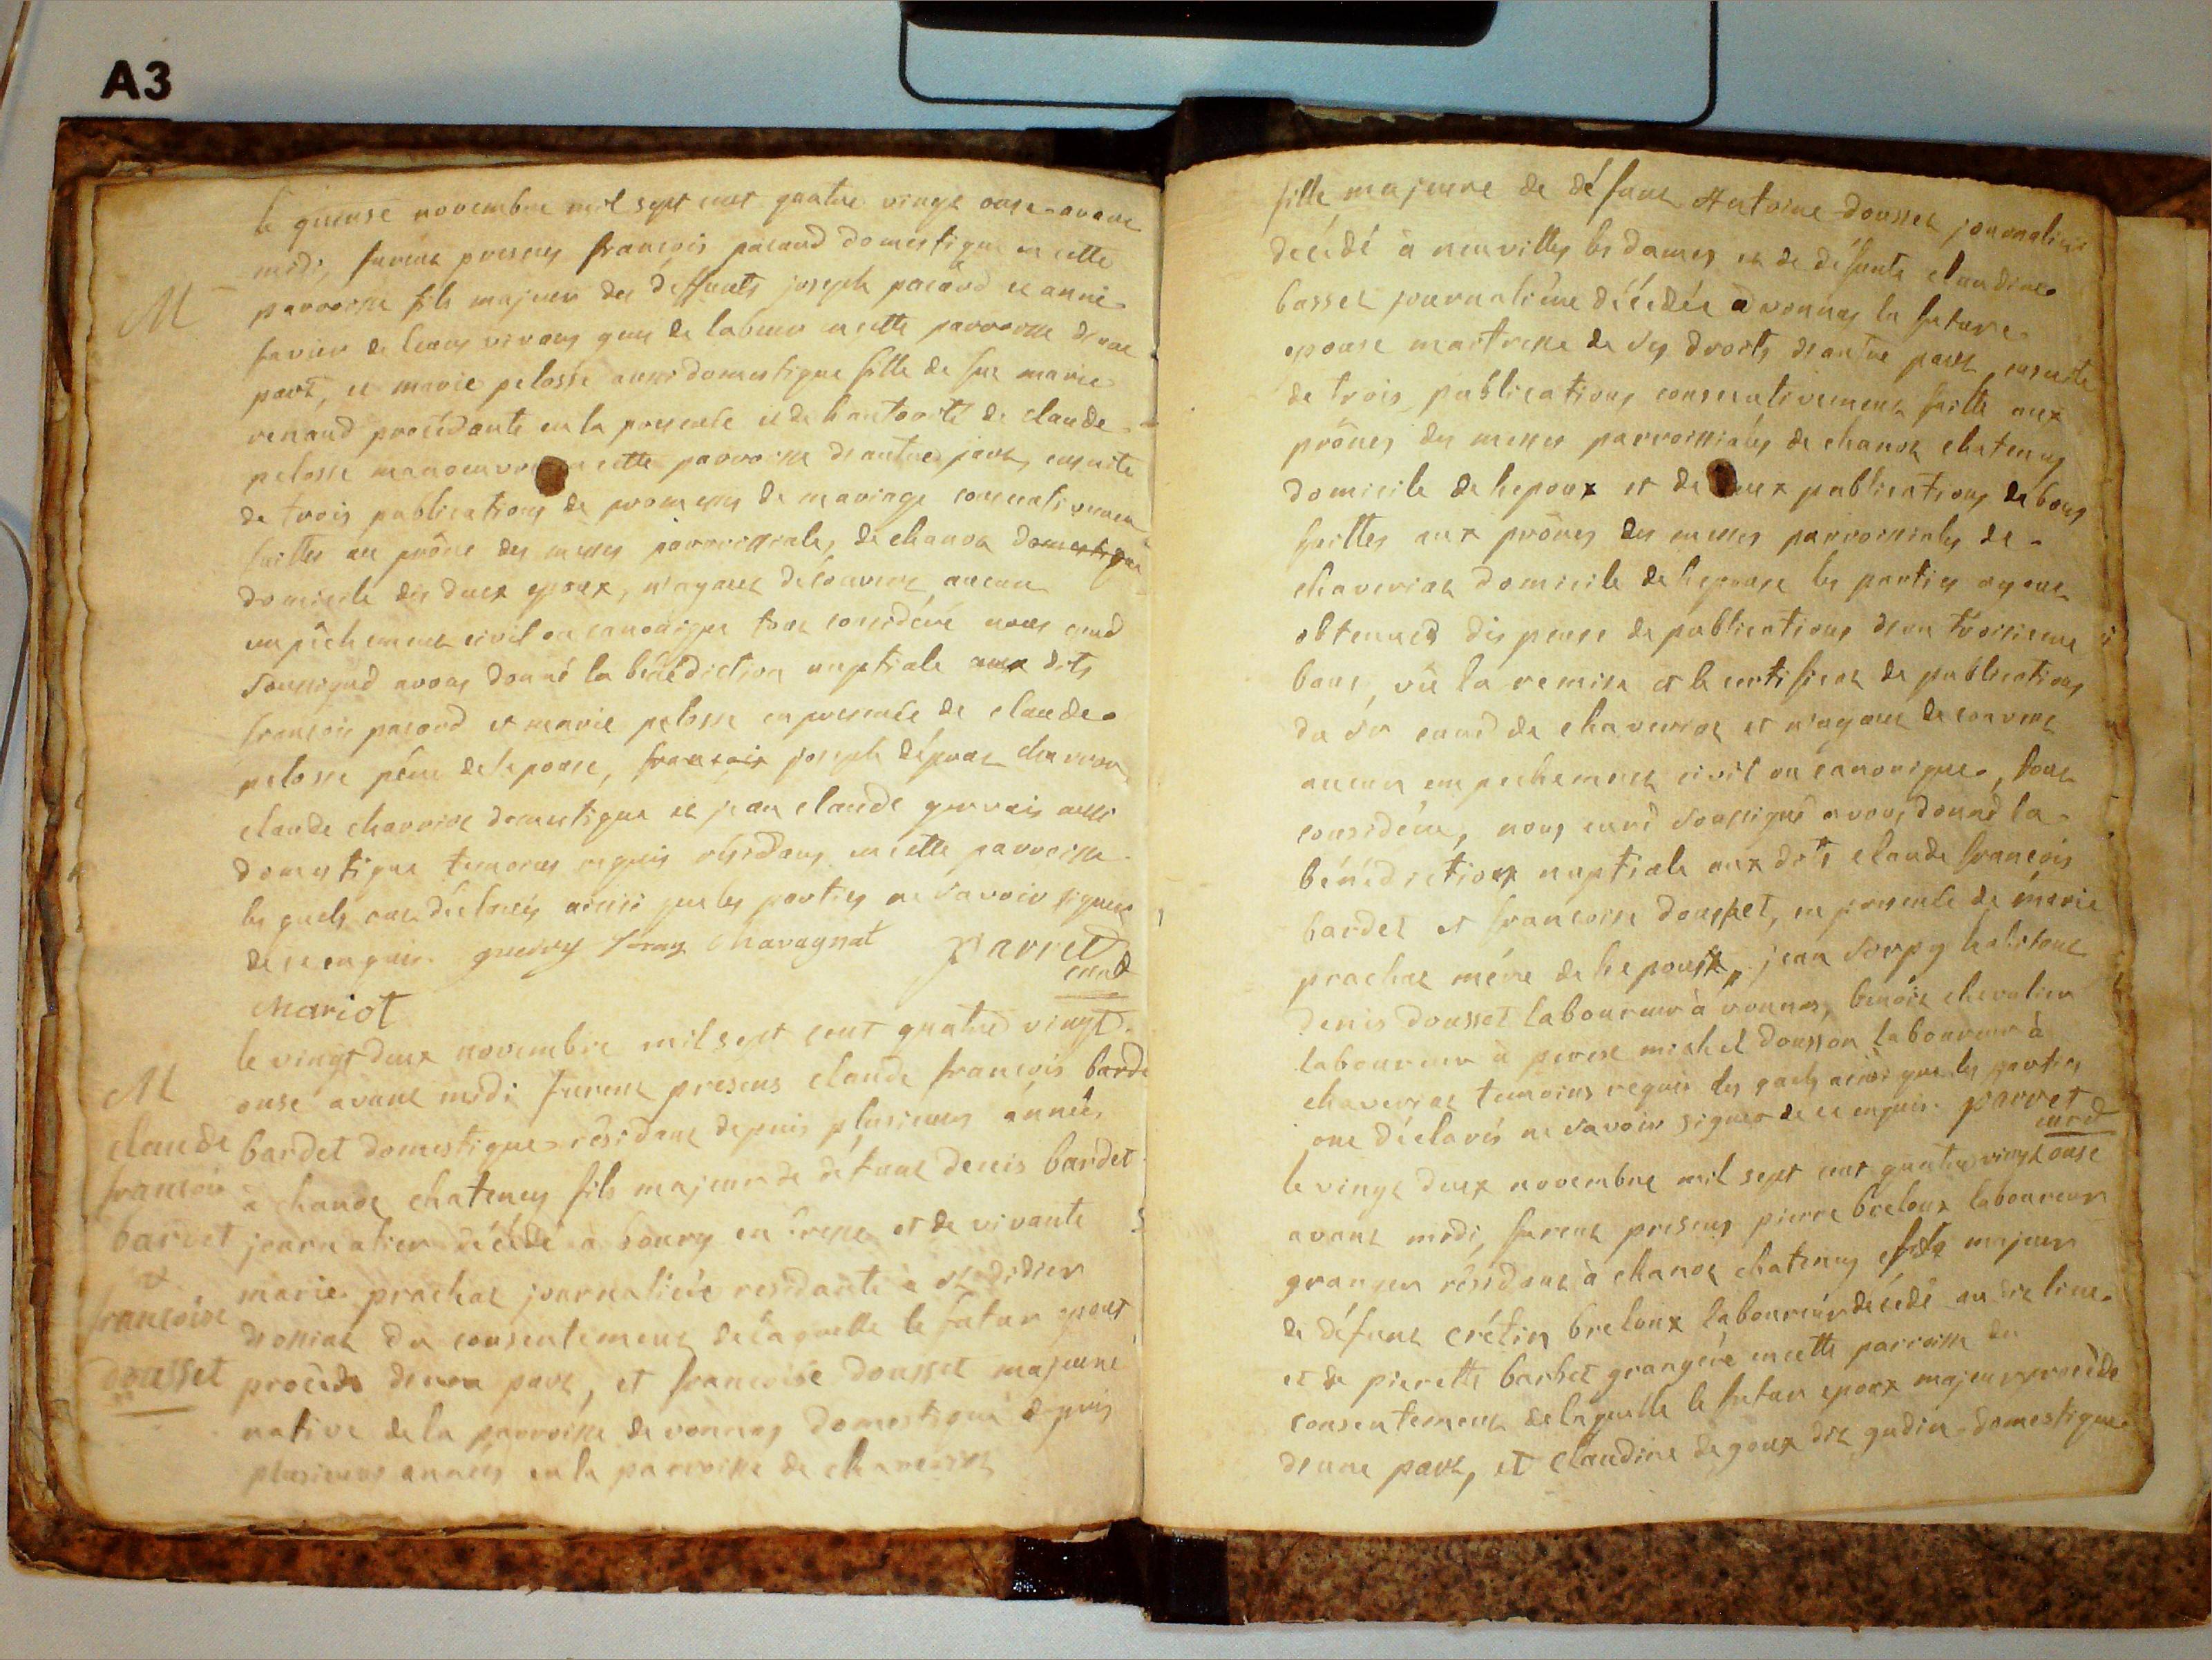 A3
le quinse novembre mil sept cent quatre vingt onse avant
midi, furent presens francois pacaud domestique en cette
M
parroisse fils majeur des deffunts joseph pacaud et anne
favier de leurs vivans gens de labeur en cette parroisse d'une
part, et marie pelosse aussi domestique fille de fue marie
renaud procédante en la presence et de l'autorité de claude
pelosse manoeuvre en cette parroisse d'autre part, ensuite
de trois publications de promesses de mariage consecutivement
faittes au prône des messes parroissiales de chanos domestique
domicile des deux epoux, n'ayant découvert aucun
empêchement civil ou canonique tout considéré nous curé
soussigné avons donné la bénédiction nuptiale aux dits
francois pacaud et marie pelosse en presence de claude
pelosse père de l'epouse, francois joseph dépras
claude charvine domestique et jean claude gervais aussi
domestique temoins requis résidans en cette parroisse
les quels ont déclarés ainsi que les parties ne savoir signer
de ce enquis. chavagnat parret
curé
Mariot
le vingt deux novembre mil sept cent quatre vingt
M
onse avant midi furent presens claude francois bard
claude bardet domestique résidant depuis plusieurs années
francois à chanos chatenay fils majeur de défunt denis bardet
bardet journalier décédé à bourg en bresse et de vivante
et
marie prachat journalière residante à st didier
francoise
du consentement de laquelle le futur epoux
dousset procède d'une part, et francoise dousset majeure
native de la parroisse de vonnas domestique depuis
plusieurs années en la parroisse de chaveriat
fille majeure de défunt Antoine dousset journalier
décédé à neuvilles les dames et de défunte claudine
basset journalière décédée à vonnas la future
epouse maitresse de ses droits d'autre part, ensuite
de trois publications consecutivement faitte aux
prônes des messes parroissiales de chanos chatenay
domicile de l'epoux et de deux publications de bans
faittes aux prônes des messes parroissiales de
chaveriat domicile de l'epouse les parties ayant
obtenues dispense de publications d'un troisieme
banc, vû la remise et le certificat de publications
du sr curé de chaveriat et n'ayant decouvert
aucun empechement civil ou canonique, tout
considéré, nous curé soussigné avons donné la
bénédiction nuptiale aux dits claude francois
bardet et francoise dousset, en presence de marie
prachat mère de l'epoux, jean habitant
denis dousset laboureur à vonnas, benoit chevalier
laboureur à perex michel dousson laboureur à
chaveriat temoins requis les quels ainsi que les parties
ont déclarés ne savoir signer de ce enquis. parret
curé
le vingt deux novembre mil sept cent quatre vingt onse
avant midi, furent presens pierre breloux laboureur
granger résidant à chanos chatenay fils majeur
de défunt crétin breloux laboureur décédé au dit lieu
et de pierrette barbet grangère en cette parroisse du
consentement de laquelle le futur epoux majeur procède
d'une part, et claudine degoux dit gudin domestique